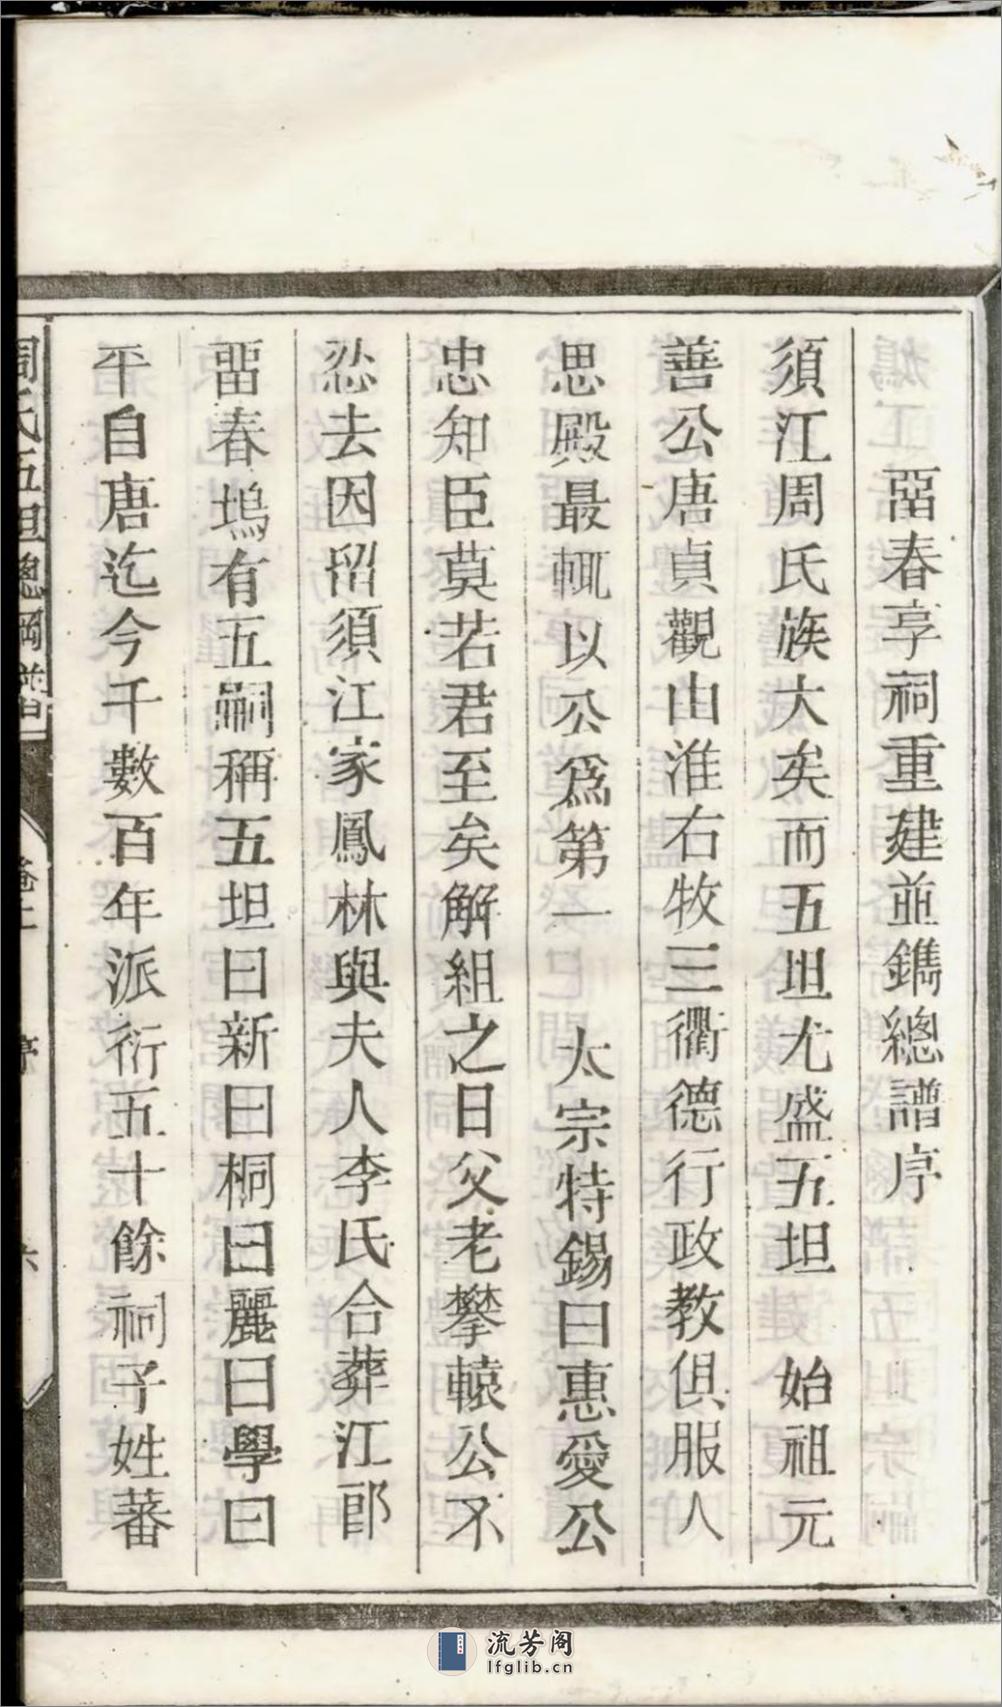 畱春享祠重建並鐫總譜序
須江周氏族大矣而五坦尤盛五坦　始祖元
善公唐貞觀由淮右牧三衢德行政教俱服人
思殿最輒以公爲第一　太宗特錫曰惠愛公
忠知臣莫若君至矣解組之日父老攀轅公不
忍去因留須江家鳳林與夫人李氏合葬江郎
畱春塢有五嗣稱五坦曰新曰桐曰麗曰學曰
平自唐迄今千數百年派衍五十餘祠子姓蕃
周氏五坦總綱譜
序
流芳阁
lfglib.cn